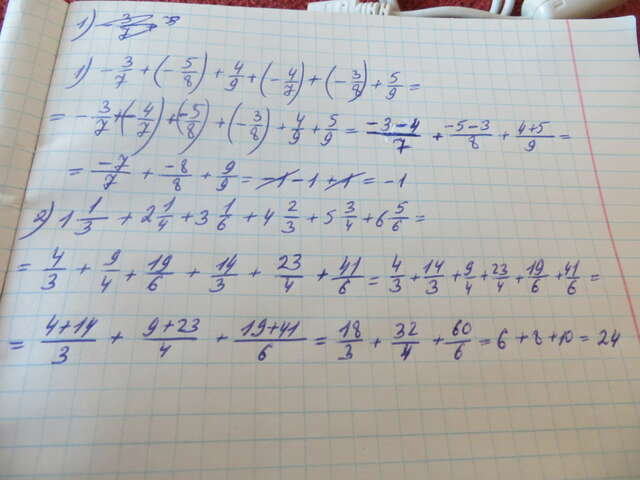 1) - 3/7
1) - 3/7 + (- 5/8) + 4/9 + (- 4/7) + (- 3/8) + 5/9 =
= - 3/7 + (- 4/7) + (- 5/8) + (- 3/8) + 4/9 + 5/9 = -3-4/7 + -5-3/8 + 4+5/9 =
= -7/7 + -8/8 + 9/9 = -1 -1 +1 = -1
2) 1 1/3 + 2 1/4 + 3 1/6 + 4 2/3 + 5 3/4 + 6 5/6 =
= 4/3 + 9/4 + 19/6 + 14/3 + 23/4 + 41/6 = 4/3 + 14/3 + 9/4 + 23/4 + 19/6 + 41/6 =
= 4+14/3 + 9+23/4 + 19+41/6 = 18/3 + 32/4 + 60/6 = 6 + 8 + 10 = 24